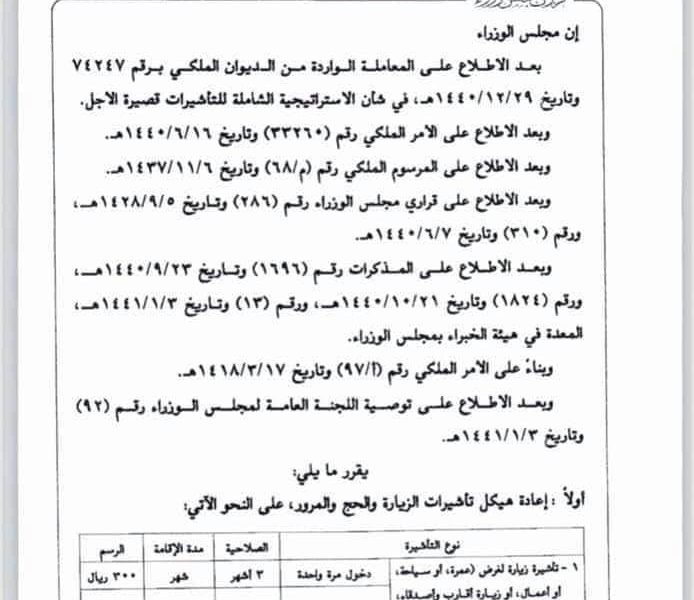 إن مجلس الوزراء
بعد الاطلاع على المعاملة الواردة من الديوان الملكي برقم ٧٤٢٤٧
وتاريخ ١٤٤٠/١٢/٢٩هـ، في شأن الاستراتيجية الشاملة للتأشيرات قصيرة الأجل.
وبعد الاطلاع على الأمر الملكي رقم (٣٣٢٦٠) وتاريخ ١٤٤٠/٦/١٦هـ.
وبعد الاطلاع على المرسوم الملكي رقم (م/٦٨) وتاريخ ١٤٣٧/١١/٦هـ.
وبعد الاطلاع على قراري مجلس الوزراء رقم (٢٨٦) وتاريخ ١٤٢٨/٩/٥هـ،
ورقم (٣١٠) وتاريخ ١٤٤٠/٦/٧هـ.
وبعد الاطلاع على المذكرات رقم (١٦٩٦) وتاريخ ١٤٤٠/٩/٢٣هـ،
ورقم (١٨٢٤) وتاريخ ١٤٤٠/١٠/٢١هـ، ورقم (١٣) وتاريخ ١٤٤١/١/٣هـ،
المعدة في هيئة الخبراء بمجلس الوزراء.
وبناءً على الأمر الملكي رقم (أ/٩٧) وتاريخ ١٤١٨/٣/١٧هـ.
وبعد الاطلاع على توصية اللجنة العامة لمجلس الوزراء رقم (٩٢)
وتاريخ ١٤٤١/١/٣هـ.
يقرر ما يلي:
أولاً : إعادة هيكل تأشيرات الزيارة والحج والمرور، على النحو الآتي:
نوع التأشيرة الصلاحية مدة الإقامة الرسم
١ - تأشيرة زيارة لغرض (عمرة، أو سياحة، دخول مرة واحدة ٣ أشهر شهر ٣٠٠ ريال
أو أعمال، أو زيارة أقارب وأصدقاء،